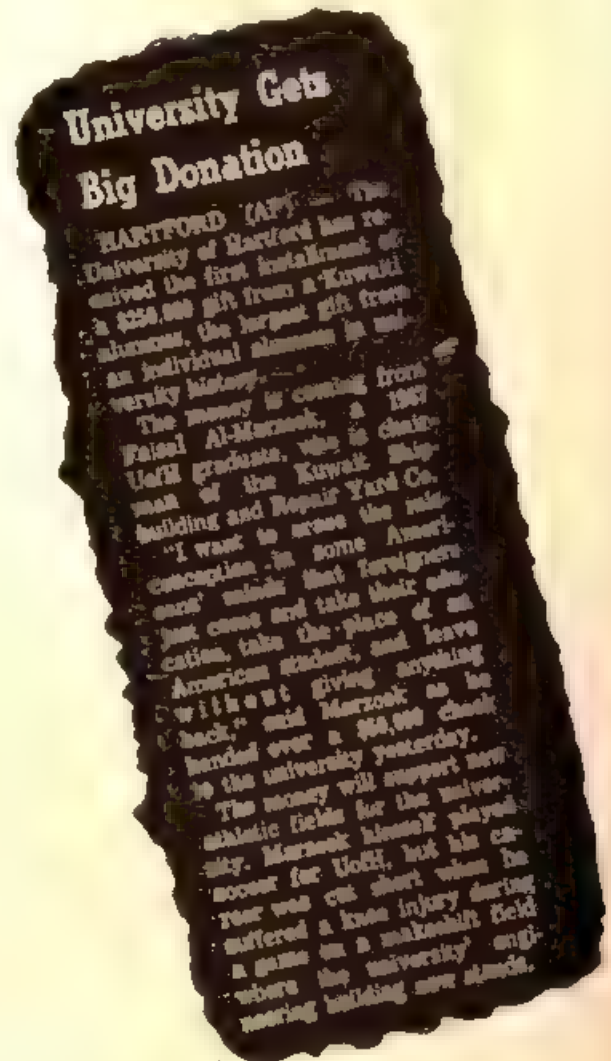 University Gets
Big Donation
HARTFORD (AP) — The
University of Hartford has re-
ceived the first installment of
a $250,000 gift from a Kuwaiti
alumnus, the largest gift from
an individual alumnus in uni-
versity history.
The money is coming from
Faisal Al-Marzook, a 1967
UofH graduate, who is chair-
man of the Kuwait Ship
building and Repair Yard Co.
"I want to erase the
conception in some Ameri-
cans' minds that foreigners
just come and take their edu-
cation, take the place of an
American student, and leave
without giving anything
back," said Marzook as he
handed over a check
to the university yesterday.
The money will support new
athletic fields for the univer-
sity. Marzook himself played
soccer for UofH, but his ca-
reer was cut short when he
suffered a knee injury during
a game on a makeshift field
where the university' engi-
neering building now stands.